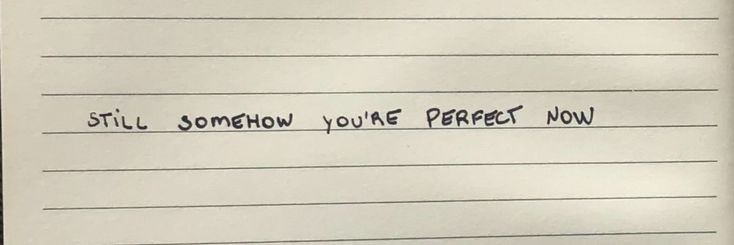 STiLL SOMEHOW YOU'RE PERFECT NOW